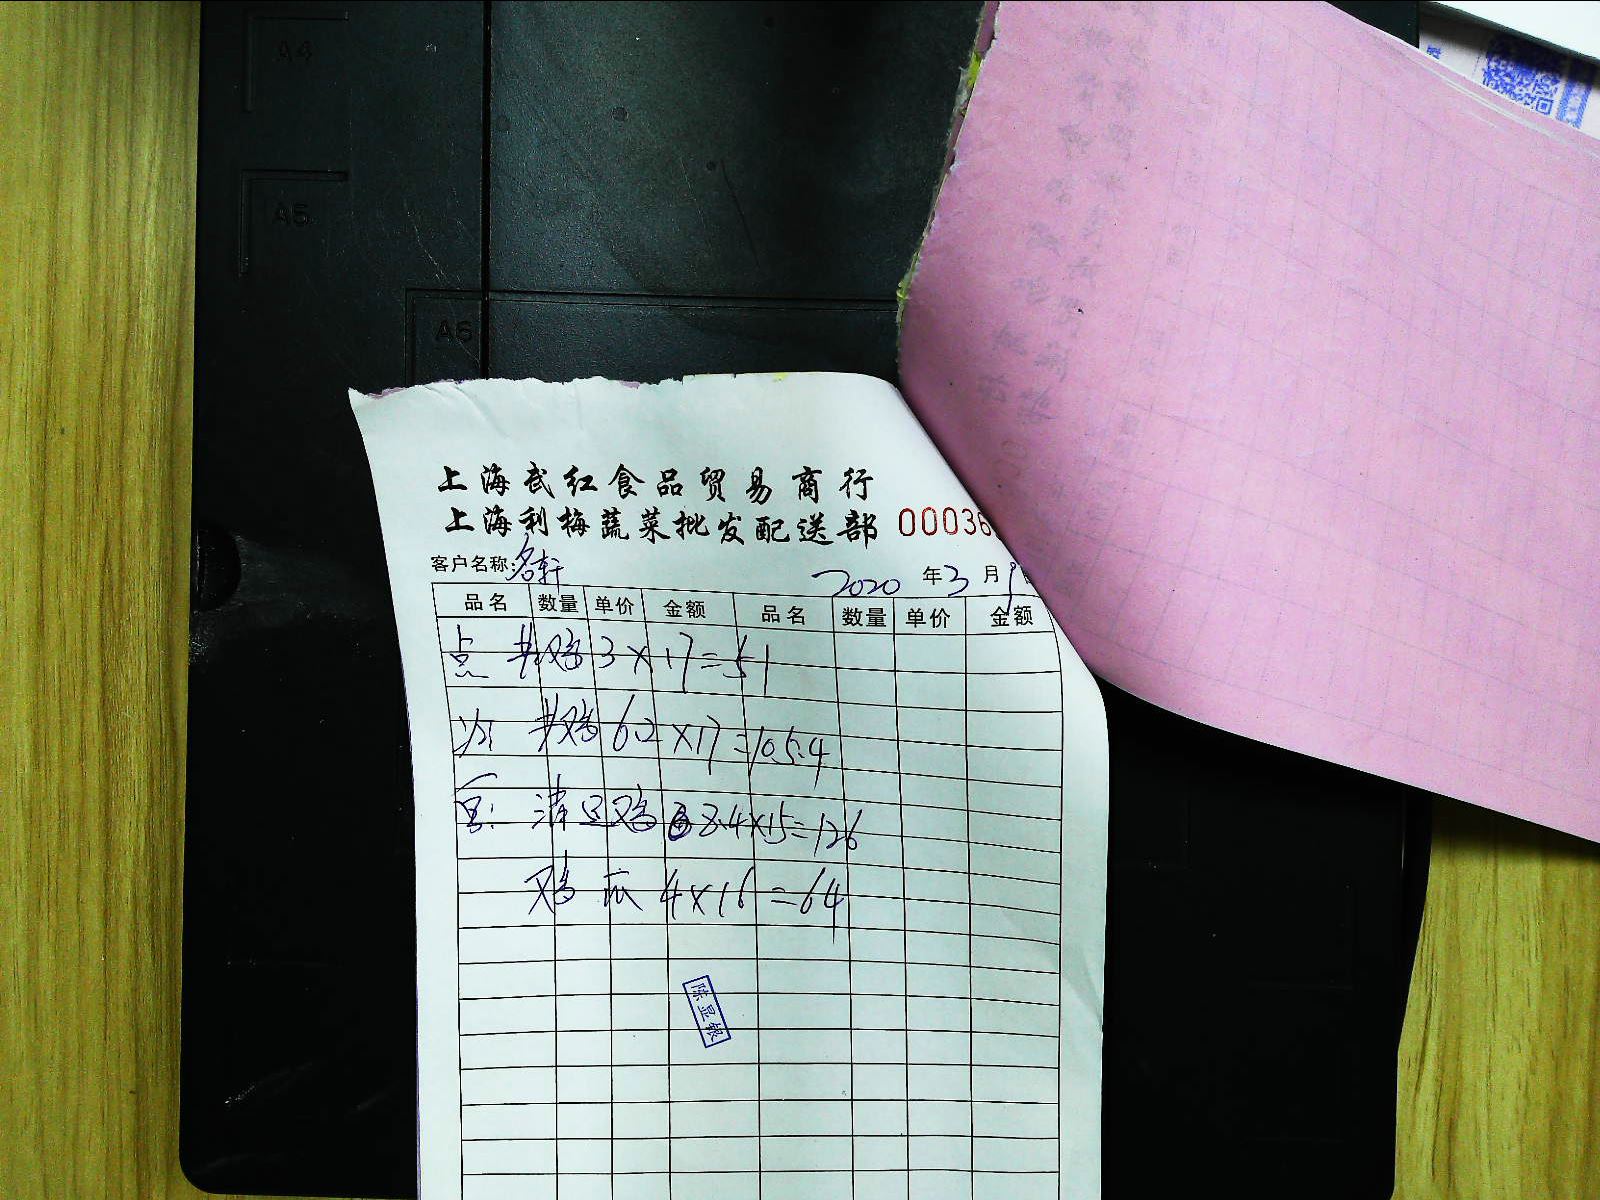 A4
A5
A6
上海武红食品贸易商行
上海利梅蔬菜批发配送部 00036
客户名称: 名轩 2020 年 3 月
品名 数量 单价 金额 品名 数量 单价 金额
点 鸡 3×17=51
鸡 6.2×17=105.4
清远鸡 8.4×15=126
鸡 4×16=64
陈显银